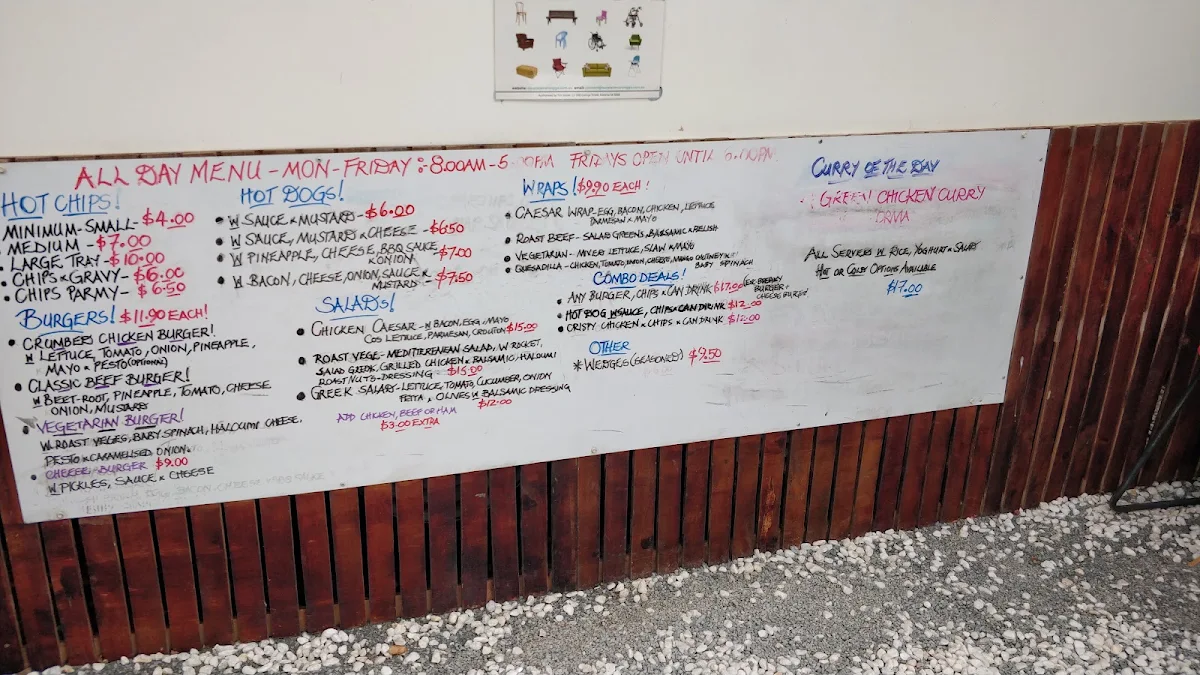 ALL DAY MENU - MON-FRIDAY : 8:00AM-5:00PM FRIDAYS OPEN UNTIL 6:00PM
HOT CHIPS!
MINIMUM-SMALL - $4.00
• MEDIUM - $7.00
• LARGE TRAY - $10.00
• CHIPS & GRAVY - $6.00
• CHIPS PARMY - $6.50
BURGERS! $11.90 EACH!
• CRUMBED CHICKEN BURGER!
W LETTUCE, TOMATO, ONION, PINEAPPLE,
MAYO & PESTO (OPTIONAL)
• CLASSIC BEEF BURGER!
W BEET-ROOT, PINEAPPLE, TOMATO, CHEESE
ONION, MUSTARD
• VEGETARIAN BURGER!
W ROAST VEGES, BABY SPINACH, HALOUMI CHEESE,
PESTO & CARAMELISED ONION.
• CHEESE BURGER $9.00
W PICKLES, SAUCE & CHEESE
HOT DOGS!
• W SAUCE & MUSTARD - $6.00
• W SAUCE, MUSTARD & CHEESE - $6.50
• W PINEAPPLE, CHEESE, BBQ SAUCE & ONION - $7.00
• W BACON, CHEESE, ONION, SAUCE & MUSTARD - $7.50
SALADS!
• CHICKEN CAESAR - W BACON, EGG, MAYO
COS LETTUCE, PARMESAN, CROUTON $15.00
• ROAST VEGE - MEDITERENEAN SALAD, W ROCKET,
SALAD GREEK, GRILLED CHICKEN & BALSAMIC, HALOUMI
ROAST NUTS - DRESSING - $15.00
• GREEK SALAD - LETTUCE, TOMATO, CUCUMBER, ONION
FETTA, & OLIVES W BALSAMIC DRESSING
$12.00
ADD CHICKEN, BEEF OR HAM
$3.00 EXTRA
WRAPS! $9.90 EACH!
• CAESAR WRAP - EGG, BACON, CHICKEN, LETTUCE
PARMESAN & MAYO
• ROAST BEEF - SALAD GREENS, BALSAMIC & RELISH
• VEGETARIAN - MIXED LETTUCE, SLAW & MAYO
• QUESADILLA - CHICKEN, TOMATO, ONION, CHEESE, MANGO CHUTNEY
BABY SPINACH
COMBO DEALS!
• ANY BURGER, CHIPS & CAN DRINK $17.00
BURGER &
CHEESE BURGER
• HOT DOG W SAUCE, CHIPS & CAN DRINK $12.00
• CRISPY CHICKEN & CHIPS & CAN DRINK $12.00
OTHER
* WEDGES (SEASONED) $9.50
CURRY OF THE DAY
GREEN CHICKEN CURRY
ALL SERVED W RICE, YOGHURT & SALAD
HOT OR COLD OPTIONS AVAILABLE
$17.00